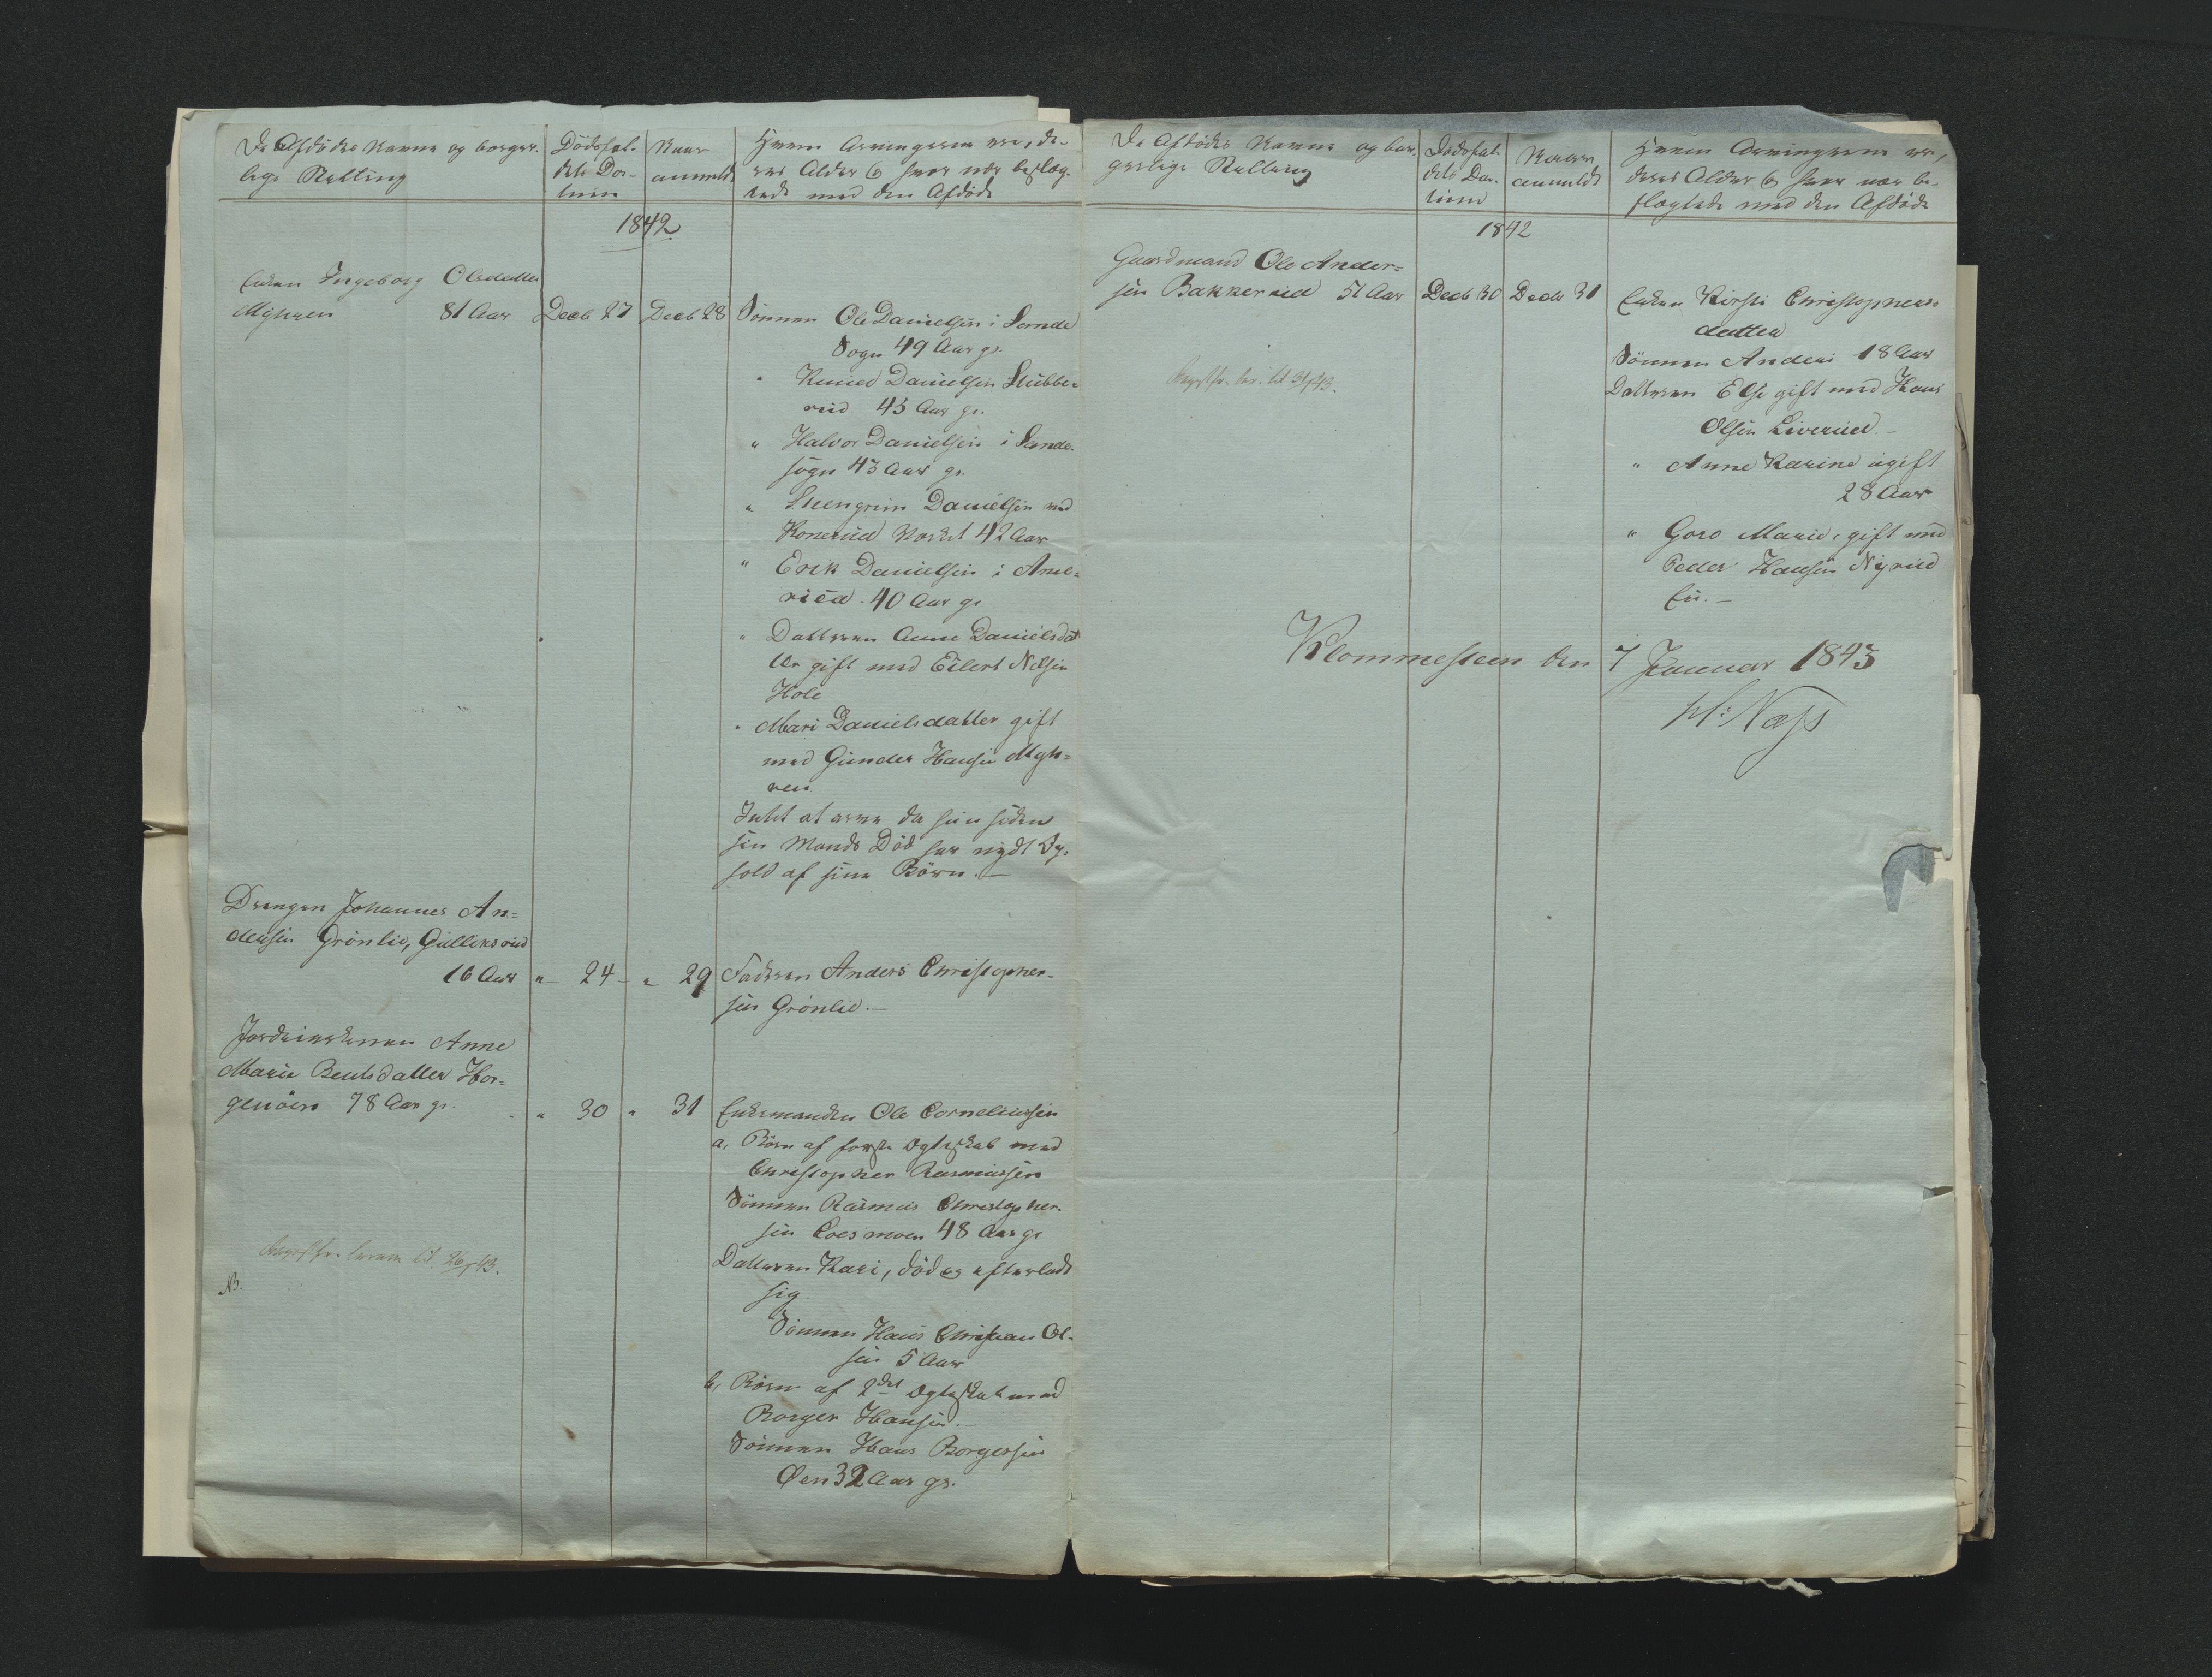 De Afdødes Navne og borger-
lige Stilling
Dødsfal-
dets Da-
tum
Naar
anmeldt
Hvem Arvingerne ere, de-
res Alder & hvor nær beslæg-
tede med den Afdøde
1842
Enken Ingeborg Olsdatter
Myhren 81 Aar
Decb 27
Decb 28
Sönnen Ole Danielsen i Sande
Sogn 49 Aar gl.
" Knud Danielsen Stubbe-
rud 45 Aar gl.
" Halvor Danielsen i Sande-
sogn 43 Aar gl.
" Steengrim Danielsen ved
Konerud Værket 42 Aar
" Erik Danielsen i Ame-
rica. 40 Aar gl.
" Datteren Anne Danielsdat
ter gift med Eilert Nilsen
Hole
" Mari Danielsdatter gift
med Gunder Hansen Myh-
ren
Intet at arve da hun siden
sin Mands Död har nydt Op-
hold af sine Börn. —
Drengen Johannes An-
dersen Grönlie, Gulliksrud
16 Aar
" 24 -
" 29
Faderen Anders Christopher-
sen Grönlie. —
Jordeierkonen Anne
Marie Bentsdatter Hor-
genöen 78 Aar gl.
" 30
" 31
Enkemanden Ole Corneliussen
a, Börn af første Ægteskab med
Christopher Rasmussen
Sönnen Rasmus Christopher-
sen Coesmoen 48 Aar gl
Datteren Kari, död og efterladt
sig
Sönnen Hans Christian Ol-
sen 5 Aar
b, Börn af 2det Ægteskab med
Borger Hansen. —
Sönnen Hans Borgersen
Öen 32 Aar gl.
NB.
De Afdødes Navne og bor-
gerlige Stilling
Dødsfal-
dets Da-
tum
Naar
anmeldt
Hvem Arvingerne er,
deres Alder & hvor nær be-
slægtede med den Afdøde
1842
Gaardmand Ole Ander-
sen Bakkerud 51 Aar
Decb 30
Decb 31
Enken Kirsti Christophers-
datter
Sönnen Anders 18 Aar
Datteren Else gift med Hans
Olsen Liverud. —
" Anne Karine ugift
28 Aar
" Goro Marie, gift med
Peder Hansen Nyrud
Klommesteen den 7 Januar 1843
H: Næss